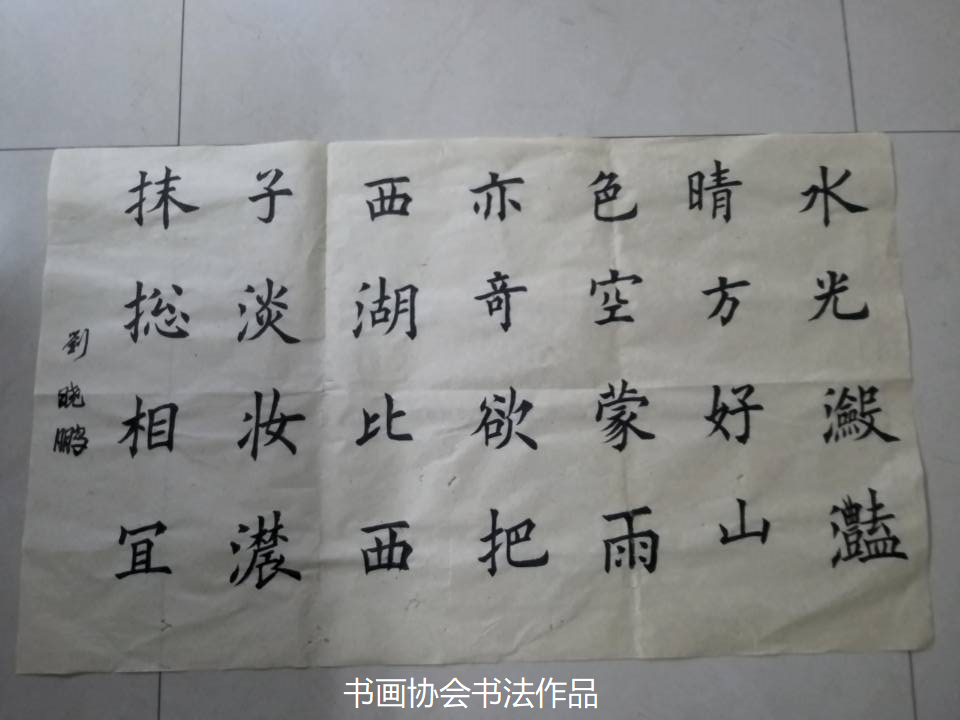 水光瀲灩
晴方好山
色空蒙雨
亦奇欲把
西湖比西
子淡妆濃
抹捴相冝
劉晓鹏
书画协会书法作品